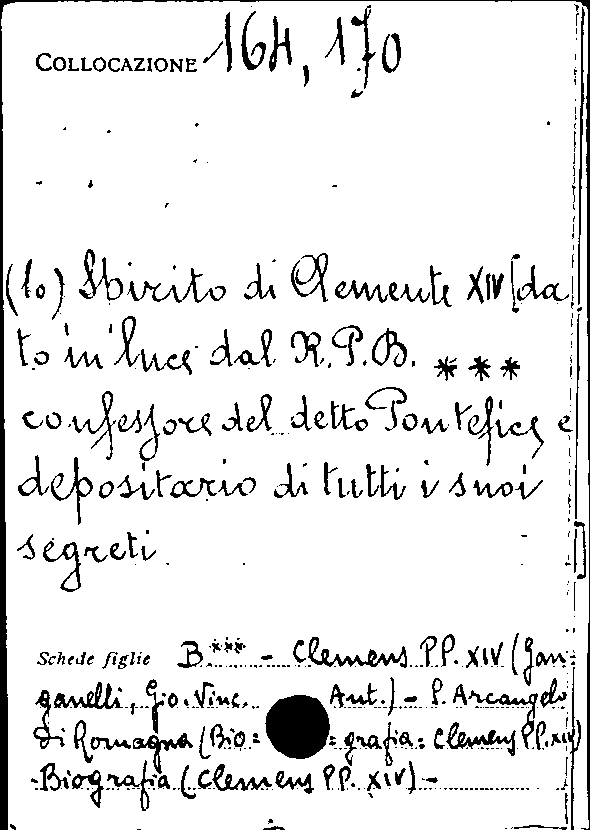 COLLOCAZIONE 164, 170
(Lo) Spirito di Clemente XIV [da
to in luce dal R.P.B. ***
confessore del detto Pontefice e
depositario di tutti i suoi
segreti.
Schede figlie B.*** - Clemens PP. XIV (Gan=
ganelli, Gio. Vinc. Ant.) - S. Arcangelo
di Romagna (Bio= =grafia: Clemens PP. XIV)
- Biografia (Clemens PP. XIV) -